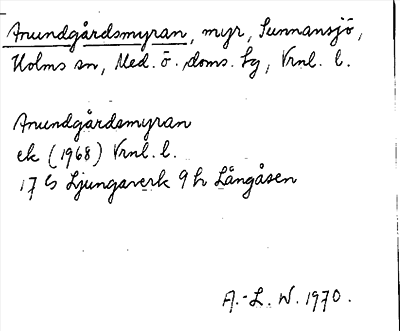 Anundgårdsmyran, myr, Sunnansjö,
Holms sn, Med. ö. doms. hg, Vrnl. l.
Anundgårdsmyran
ek (1968) Vrnl. l.
17 G Ljungaverk 9 h Långåsen
A.-L. W. 1970.